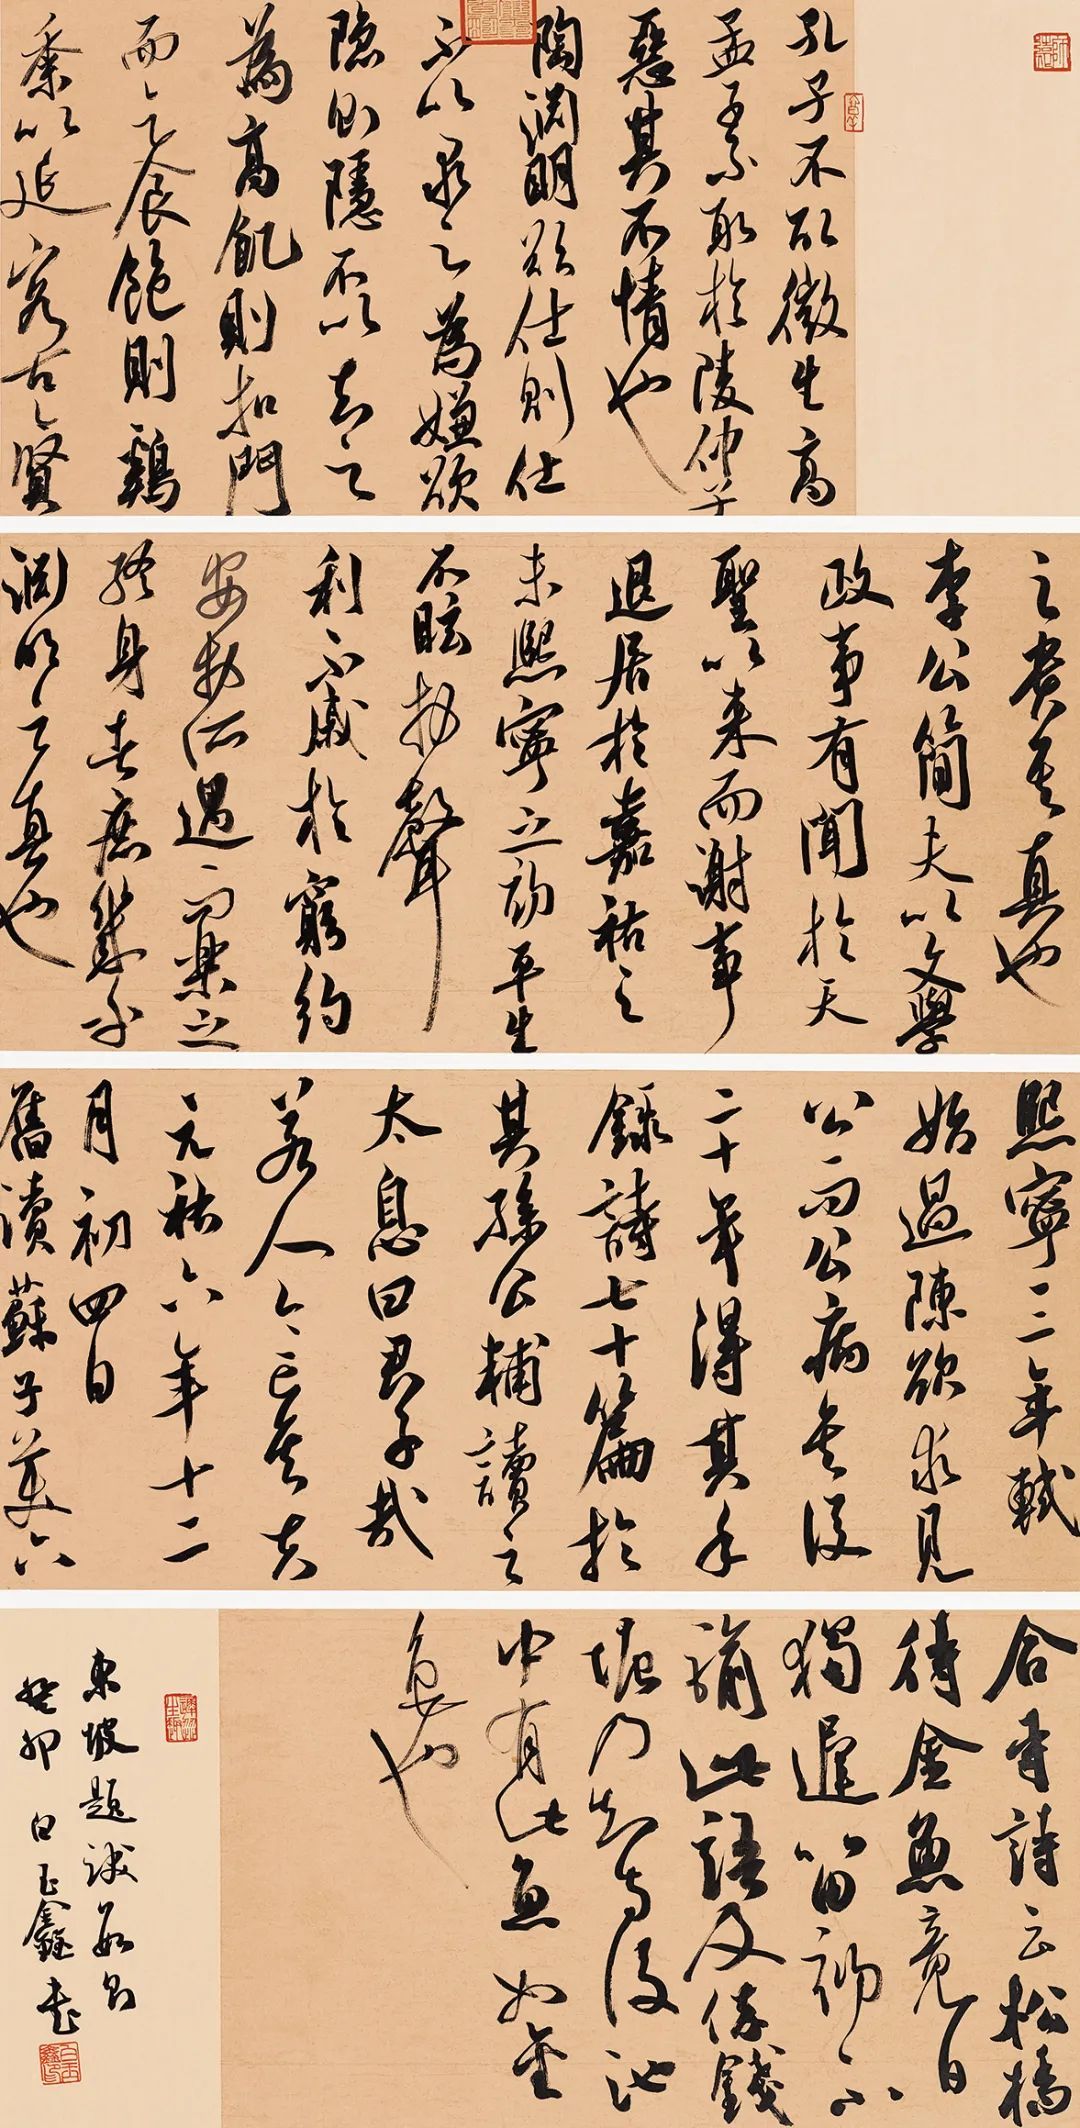 孔子不取微生高
孟子不取於陵仲子
惡其不情也
陶淵明欲仕則仕
不以求之為嫌欲
隱則隱不以去之
為高飢則扣門
而乞食飽則鷄
黍以延客古今賢
之貴其真也
李公簡夫以文學
政事有聞於天
聖以來而謝事
退居於嘉祐之
末熙寧之初平生
不眩於聲
利不戚於窮約
安於所遇而樂之
終身者庶幾乎
淵明之真也
熙寧三年軾
始過陳欲求見
公而公病矣後
二十年得其手
錄詩七十篇於
其孫公輔讀之
太息曰君子哉
若人今亡矣夫
元祐六年十二
月初四日
舊讀蘇子美六
合寺詩云松橋
待金魚竟日
獨遲留初不
諭此語及倅錢
塘乃知寺後池
中有此魚如金
色也
東坡題跋數則
癸卯 白玉鑫書